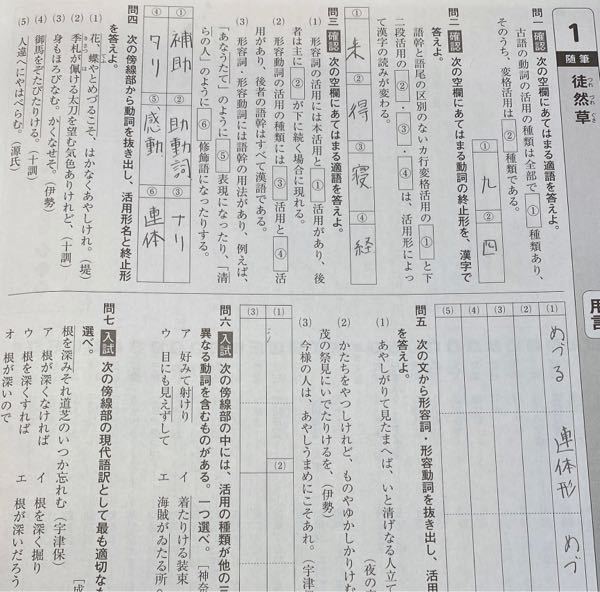 1
随筆
徒然草
つれづれぐさ
問一 確認 次の空欄にあてはまる適語を答えよ。
古語の動詞の活用の種類は全部で①種類あり、
そのうち、変格活用は②種類である。
① 九 ② 四
問二 確認 次の空欄にあてはまる動詞の終止形を、漢字で
答えよ。
語幹と語尾の区別のないカ行変格活用の①と下
二段活用の②・③・④は、活用形によっ
て漢字の読みが変わる。
① 来 ② 得 ③ 寝 ④ 経
問三 確認 次の空欄にあてはまる適語を答えよ。
(1) 形容詞の活用には本活用と①活用があり、後
者は主に②が下に続く場合に現れる。
(2) 形容動詞の活用の種類には③活用と④活
用があり、後者の語幹はすべて漢語である。
(3) 形容詞・形容動詞には語幹の用法があり、例えば、
「あなうたて」のように⑤表現になったり、「清
らの人」のように⑥修飾語になったりする。
① 補助 ② 助動詞 ③ ナリ
④ タリ ⑤ 感動 ⑥ 連体
問四 次の傍線部から動詞を抜き出し、活用形名と終止形
を答えよ。
(1) 花、蝶やとめづるこそ、はかなくあやしけれ。(堤)
(2) 季札が佩ける太刀を望む気色ありけれど、(十訓)
きさつ は
(3) 身もほろびなむ。かくなせそ。(伊勢)
(4) 御馬をぞたびたりける。(十訓)
(5) 人違へにやはべらむ。(源氏)
用言
(1) めづる 連体形 めづ
(2)
(3)
(4)
(5)
問五 次の文から形容詞・形容動詞を抜き出し、活用
を答えよ。
(1) あやしがりて見たまへば、いと清げなる人立て
(夜の
(2) かたちをやつしけれど、ものやゆかしかりけむ
茂の祭見にいでたりけるを、(伊勢)
(3) 今様の人は、あやしうまめにこそあれ。(宇津
(1)
(2)
(3)
問六 入試 次の傍線部の中には、活用の種類が他の三
異なる動詞を含むものがある。一つ選べ。[神奈
ア 好みて射けり イ 着たりける装束
ウ 目にも見えずして エ 海賊がゐたる所へ
問七 入試 次の傍線部の現代語訳として最も適切なも
選べ。
[成
根を深みそれ道芝のいつか忘れむ(宇津保)
ア 根が深くなければ イ 根を深く掘り
ウ 根を深くすれば エ 根が深いだろう
オ 根が深いので